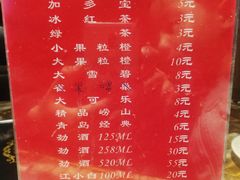 加 多 宝 5元
冰 红 茶
绿 茶 3元
小 果 粒 橙 4元
大 果 粒 橙 10元
大 雪 碧 8元
3元
大 可 乐 8元
精 品 崂 山 6元
青 岛 经 典 6元
劲 酒 125ML 15元
劲 酒 258ML 30元
劲 酒 520ML 55元
江小白100ML 20元